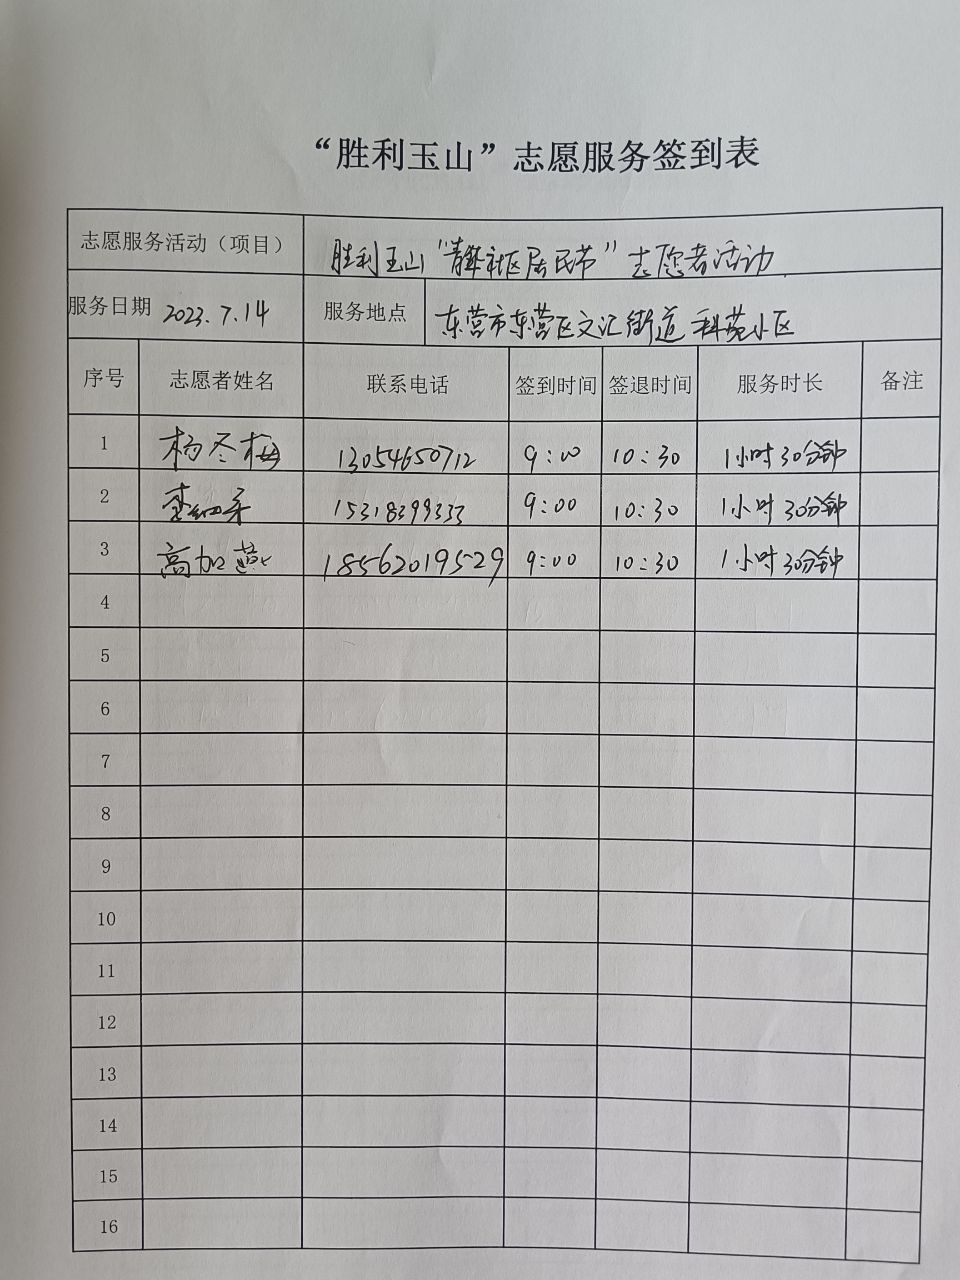 “胜利玉山”志愿服务签到表
志愿服务活动（项目） 胜利玉山“青春社区居民节”志愿者活动
服务日期 2023.7.14 服务地点 东营市东营区文汇街道科苑小区
序号 志愿者姓名 联系电话 签到时间 签退时间 服务时长 备注
1 杨冬梅 13054650712 9:00 10:30 1小时30分钟
2 15318399333 9:00 10:30 1小时30分钟
3 高加 18562019529 9:00 10:30 1小时30分钟
4
5
6
7
8
9
10
11
12
13
14
15
16